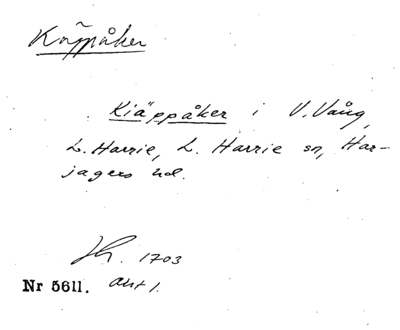 Käppåker
Kiäppåker i V. Vång,
L. Harrie, L. Harrie sn, Har-
jagers hd.
Jb. 1703
Nr 5611. Akt 1.